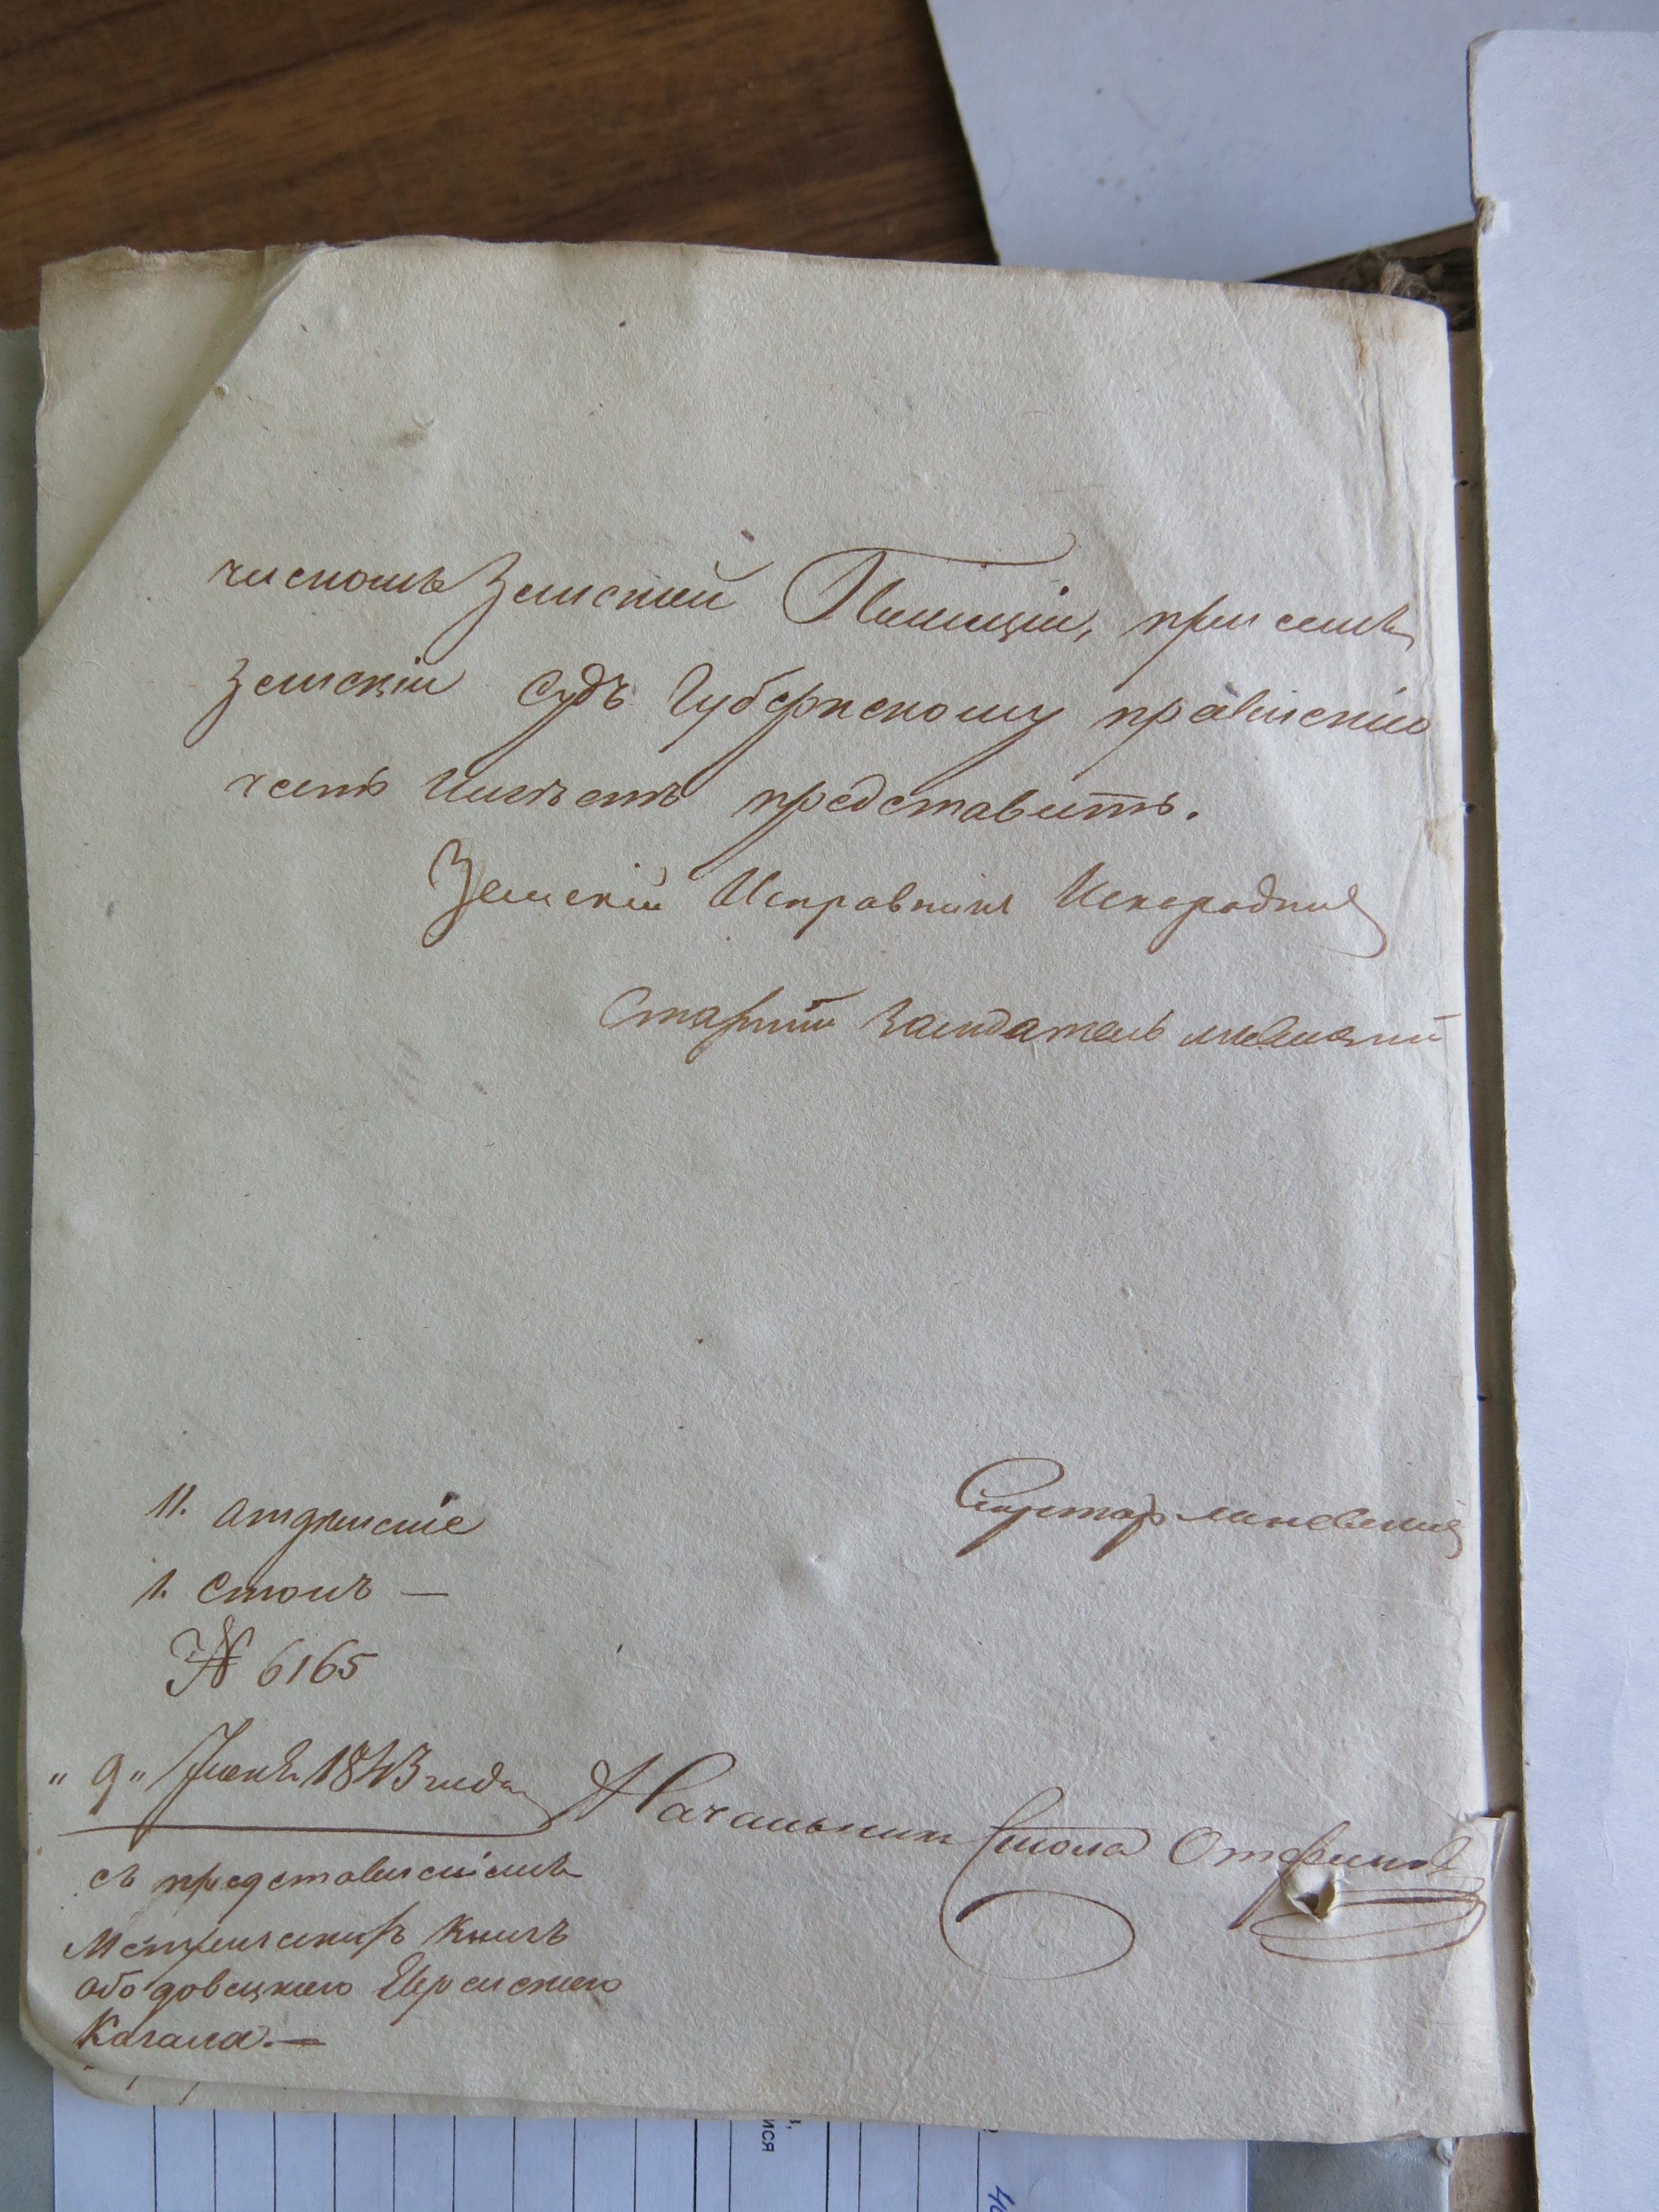 численъ Земской Полиціи, при семъ
Земскій Судъ Губернскому правленію
честь имѣетъ представить.
Земскій Исправникъ
Старшій Засѣдатель
Секретарь
11. отдѣленіе
1. Столъ —
№ 6165
„ 9 „ Іюня 1843 года
Начальникъ Стола
съ представленіемъ
Метрическихъ Книгъ
ободовецкаго Еврейскаго
Кагала. —
ися